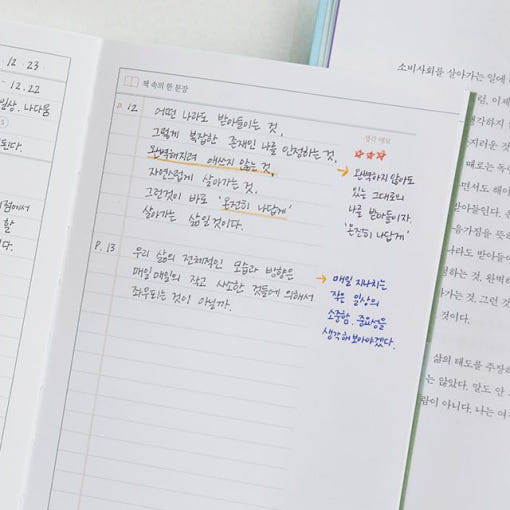 12.23
12.22
책 속의 한 문장
P. 12
어떤 나라도 받아들이는 것,
그렇게 복잡한 존재인 나를 인정하는 것,
완벽해지려 애쓰지 않는 것,
자연스럽게 살아가는 것.
그런것이 바로 '온전히 나답게'
살아가는 삶일 것이다.
생각 메모
완벽하지 않아도
있는 그대로의
나를 받아들이자.
'온전히 나답게'
P. 13
우리 삶의 전체적인 모습과 방향은
매일 매일의 작고 사소한 것들에 의해서
좌우되는 것이 아닐까.
매일 지나치는
작은 일상의
소중함. 중요성을
생각해보아야겠다.
일상. 나다움
할
다.
소비사회를 살아가는 일에
이제
생각하지
때로는
면서도 해야
받아들인다.
나라도 받아들이
하는 것, 완벽
가는 것. 그런 것
것이다.
삶의 태도를 주장하
는 않았다. 말도 안
람이 아니다. 나는